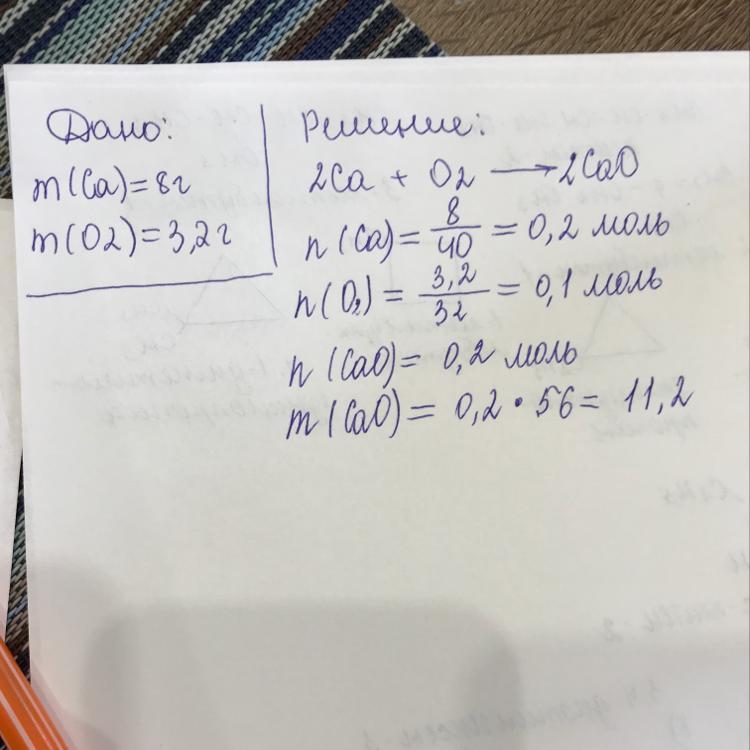 Дано:
m(Ca)=8г
m(O2)=3,2г
Решение:
2Ca + O2 → 2CaO
n(Ca)= 8/40 = 0,2 моль
n(O2)= 3,2/32 = 0,1 моль
n(CaO)= 0,2 моль
m(CaO)= 0,2 • 56= 11,2